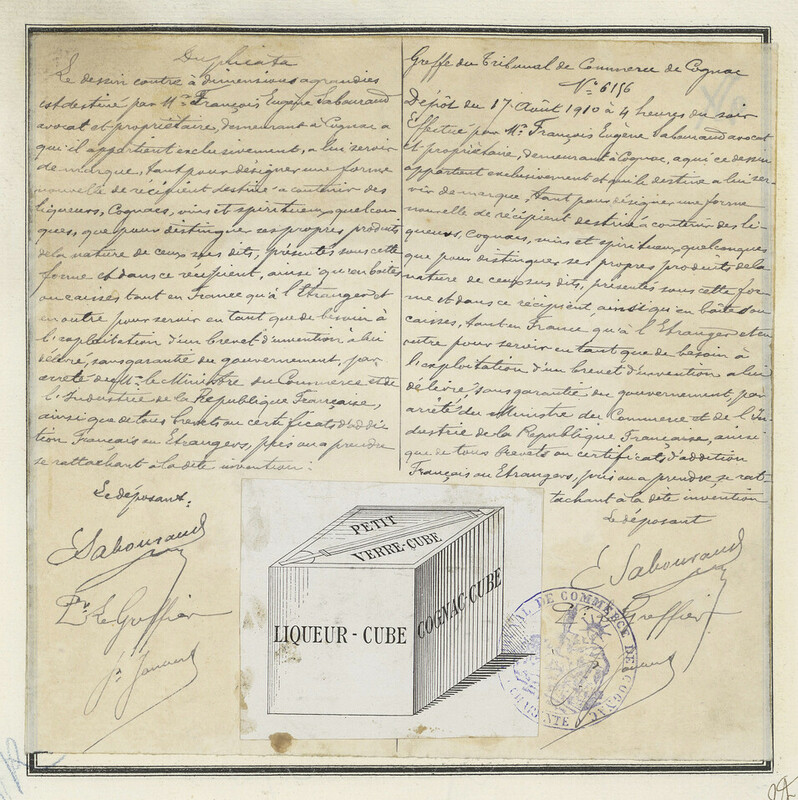 Duplicata
Le dessin contre à dimensions agrandies
est destiné par Mr François Eugène Sabouraud
avocat et propriétaire, demeurant à Cognac a
qui il appartient exclusivement, a lui servir
de marque, tant pour désigner une forme
nouvelle de récipient destiné a contenir des
liqueurs, Cognacs, vins et spiritueux, quelcon
ques, que pour distinguer ses propres produits
de la nature de ceux sus dits, présentés sous cette
forme et dans ce récipient, ainsi qu'en boîtes
ou caisses tant en France qu'à l'Etranger et
en outre pour servir en tant que de besoin à
l'exploitation d'un brevet d'invention a lui
délivré, sans garantie du gouvernement, par
arrêté de Mr le Ministre du Commerce et de
l'Industrie de la République Française,
ainsi que de tous brevets ou certificats d'addi
tion, Français ou Etrangers, pris ou a prendre
se rattachant à la dite invention.
Le déposant:
E Sabouraud
Pr Le Greffier
Greffe du Tribunal de Commerce de Cognac
No 6156
Dépôt du 17 Août 1910 à 4 heures du soir
Effectué par Mr François Eugène Sabouraud avocat
et propriétaire, demeurant à Cognac, a qui ce dessin
appartient exclusivement et qui le destine a lui ser-
vir de marque, tant pour désigner une forme
nouvelle de récipient destiné à contenir des li-
queurs, Cognacs, vins et spiritueux, quelconques
que pour distinguer ses propres produits de la
nature de ceux sus dits, présentés sous cette for-
me et dans ce récipient, ainsi qu'en boîtes ou
caisses, tant en France qu'à l'Etranger et en
outre pour servir en tant que de besoin à
l'exploitation d'un brevet d'invention a lui
délivré, sans garantie du gouvernement, par
arrêté du Ministre du Commerce et de l'In-
dustrie de la République Française, ainsi
que de tous Brevets ou certificats d'addition
Français ou Etrangers, pris ou a prendre, se rat-
tachant à la dite invention
Le déposant
E Sabouraud
Greffier
PETIT
VERRE-CUBE
LIQUEUR - CUBE
COGNAC-CUBE
DE COMMERCE DE COGNAC
CHARENTE